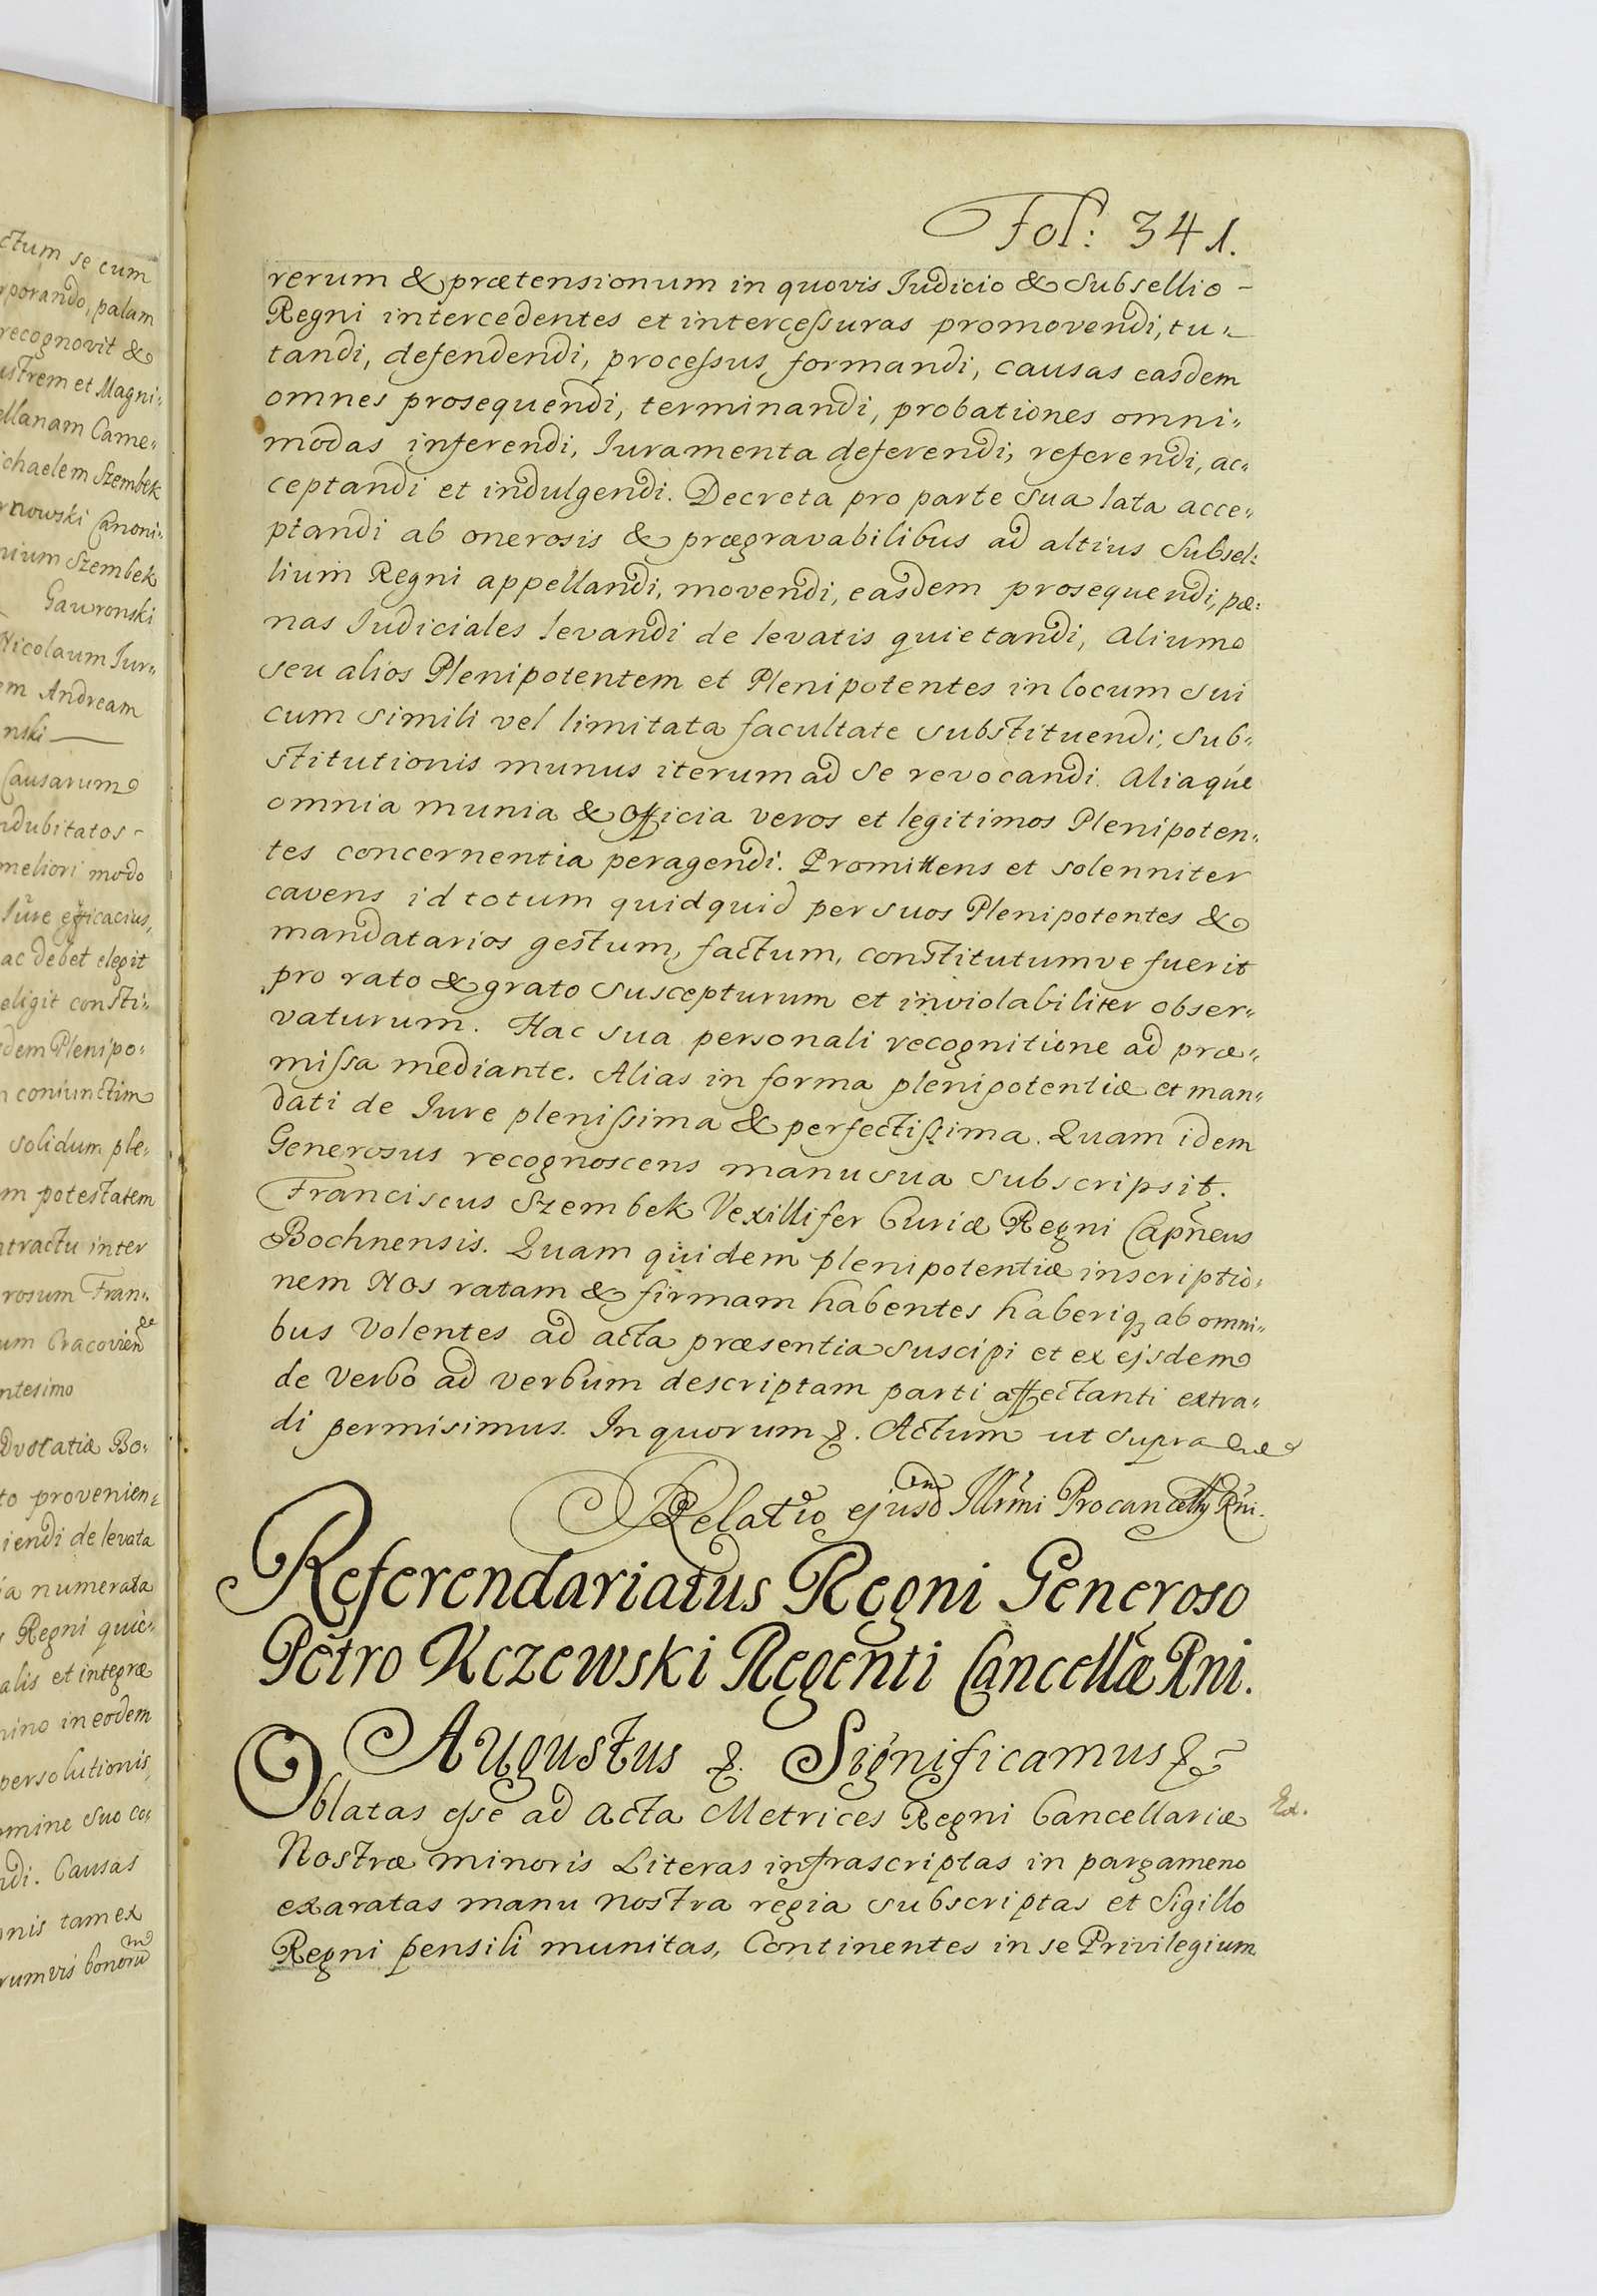 Fol: 341.
rerum & prætensionum in quovis Judicio & Subsellio -
Regni intercedentes et intercessuras promovendi, tu-
tandi, defendendi, processus formandi, causas easdem
omnes prosequendi, terminandi, probationes omni-
modas inferendi, Iuramenta deferendi, referendi, ac-
ceptandi et indulgendi. Decreta pro parte sua lata acce-
ptandi ab onerosis & prægravabilibus ad altius Subsel-
lium Regni appellandi, movendi, easdem prosequendi, pæ-
nas Iudiciales levandi de levatis quietandi, Alium
seu alios Plenipotentem et Plenipotentes in locum sui
cum simili vel limitata facultate substituendi, sub-
stitutionis munus iterum ad se revocandi. Aliaque
omnia munia & Officia veros et legitimos Plenipoten-
tes concernentia peragendi. Promittens et solenniter
cavens id totum quidquid per suos Plenipotentes &
mandatarios gestum, factum, constitutumve fuerit
pro rato & grato suscepturum et inviolabiliter obser-
vaturum. Hac sua personali recognitione ad præ-
missa mediante. Alias in forma plenipotentiæ et man-
dati de Iure plenissima & perfectissima. Quam idem
Generosus recognoscens manu sua subscripsit.
Franciscus Szembek Vexillifer Curiæ Regni Capneus
Bochnensis. Quam quidem plenipotentiæ inscriptio-
nem Nos ratam & firmam habentes haberiq ab omni-
bus Volentes ad acta præsentia suscipi et ex ejsdem
de Verbo ad verbum descriptam parti affectanti extra-
di permisimus. In quorum &. Actum ut supra
Relatio ejusd Illrmi Procancellrij Rni.
Referendariatus Regni Generoso
Petro Kczewski Regenti Cancellæ Rni.
Augustus &. Significamus &
Oblatas esse ad Acta Metrices Regni Cancellariæ
Nostræ minoris Literas infrascriptas in pargameno
exaratas manu nostra regia subscriptas et Sigillo
Regni pensili munitas, Continentes in se Privilegium
ctum se cum
rporando, palam
recognovit &
ustrem et Magni-
ellanam Came-
ichaelem Szembek
rnowski Canoni-
nium Szembek
Gawronski
Nicolaum Iur-
em Andream
nski
Causarum
ndubitatos -
meliori modo
Iure efficacius,
ac debet elegit
eligit consti-
dem Plenipo-
n coniunctim
solidum ple-
m potestatem
ntractu inter
rosum Fran-
um Cracovien
ntesimo
dvocatiæ Bo-
to provenien-
iendi de levata
ia numerata
s Regni quie-
alis et integræ
nino in eodem
persolutionis
omine suo co-
ndi. Causas
onis tam ex
rumvis bonoru